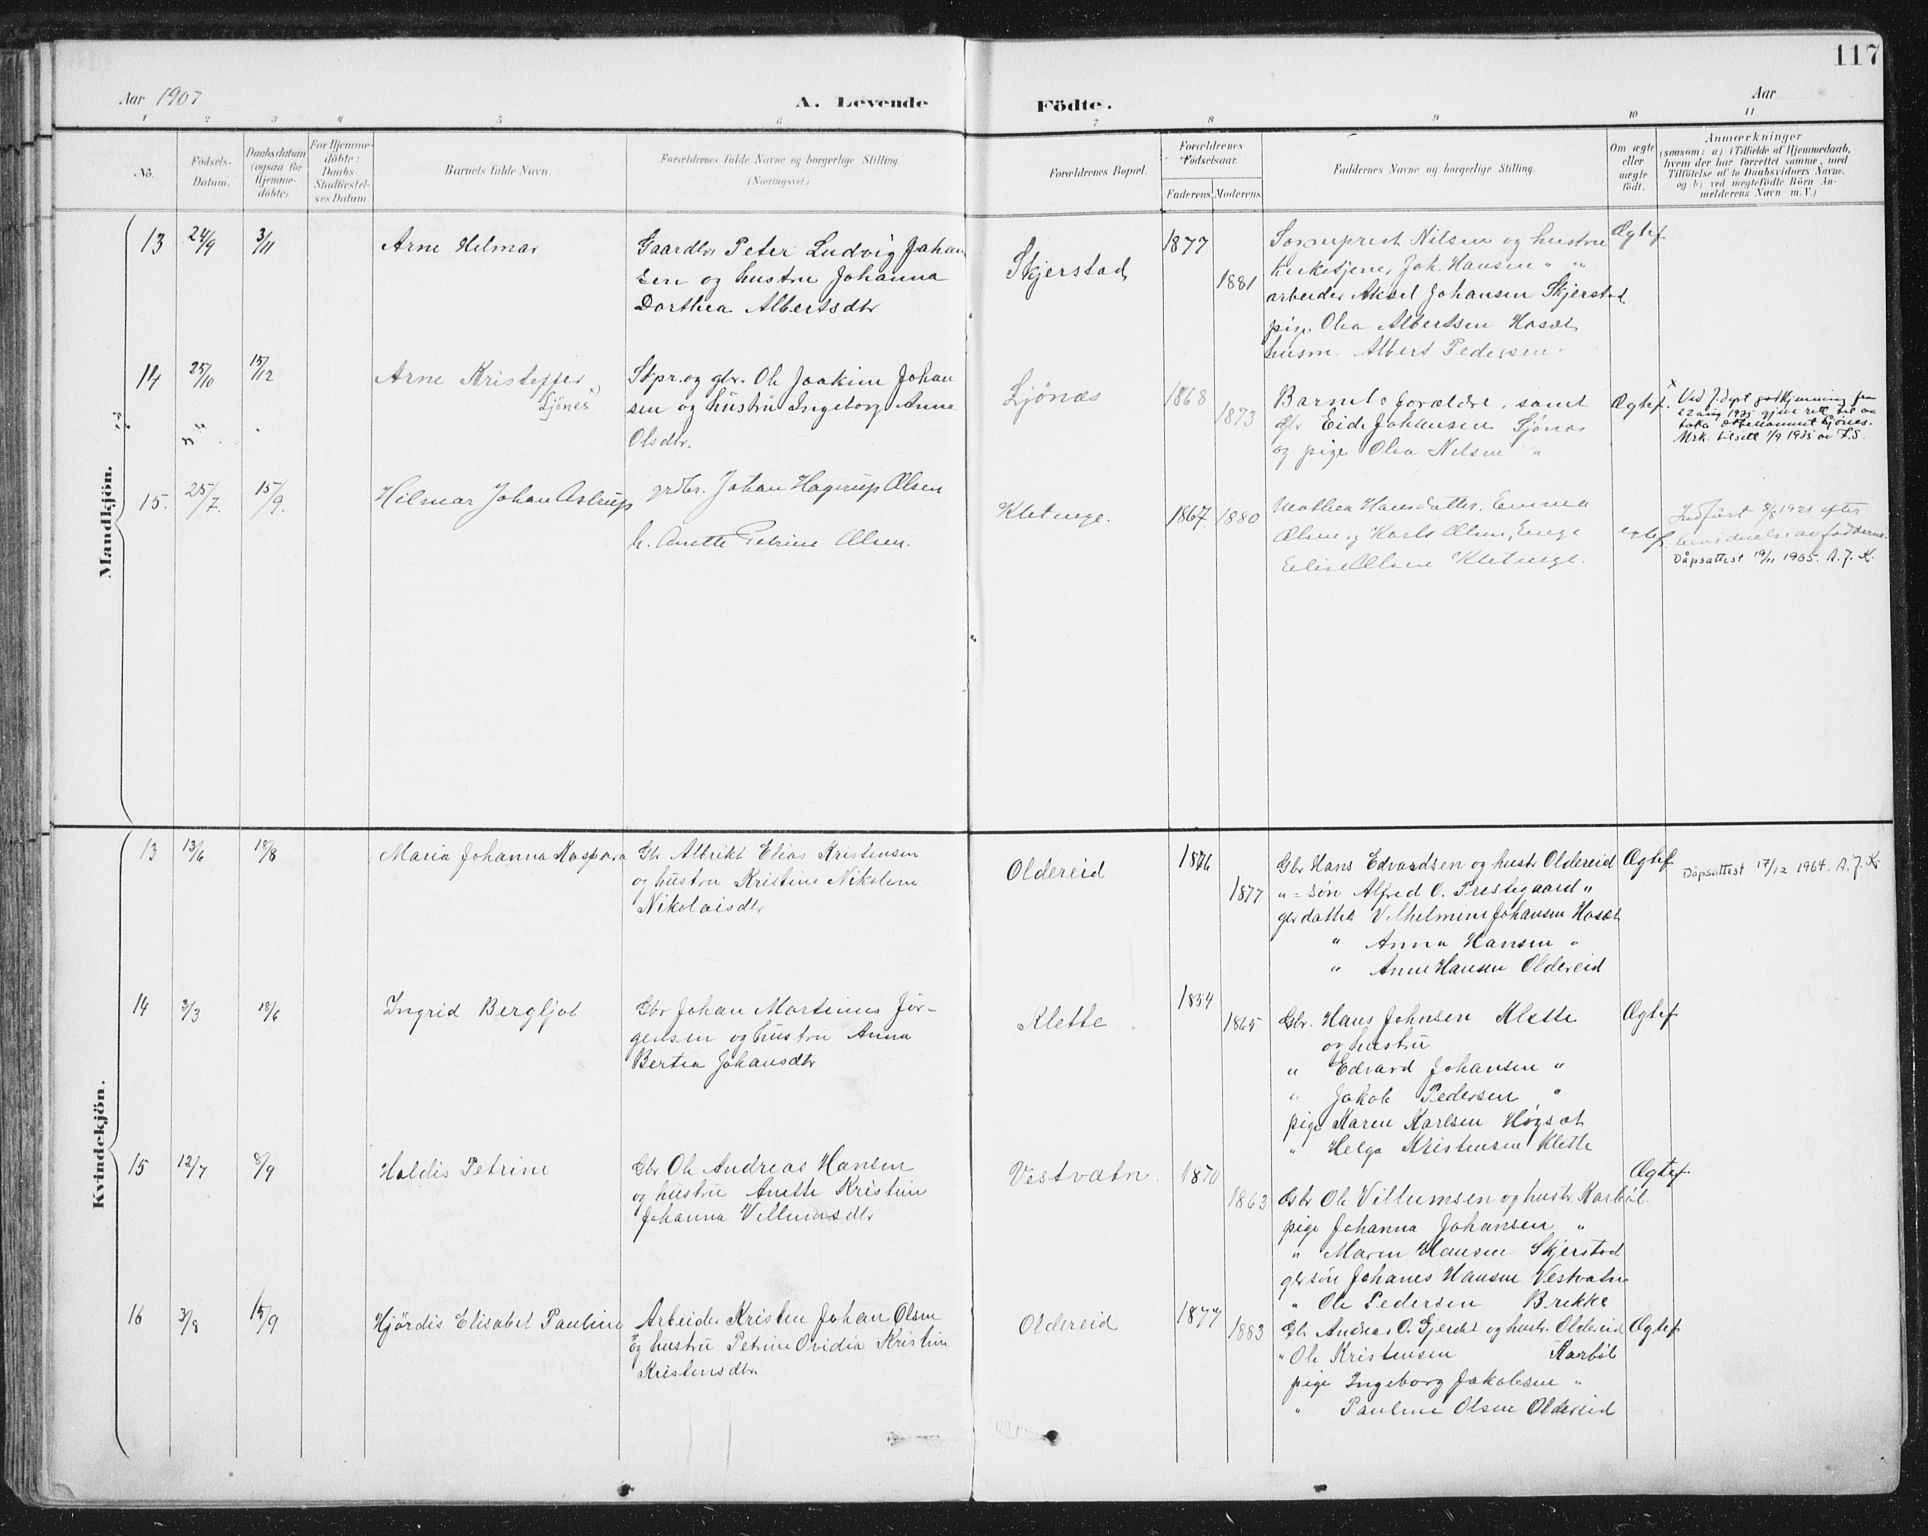 117
Aar 1907
A. Levende
Födte.
Aar
1 2 3 4 5 6 7 8 9 10 11
No.
Födsels-
Datum.
Daabsdatum
(ogsaa for
Hjemme-
döbte).
For Hjemme-
döbte:
Daabs
Stadfæstel-
ses Datum.
Barnets fulde Navn.
Forældrenes fulde Navne og borgerlige Stilling
(Næringsvei.)
Forældrenes Bopæl.
Forældrenes
Födselsaar.
Faderens.
Moderens.
Faddernes Navne og borgerlige Stilling.
Om ægte
eller
uægte
födt.
Anmærkninger
(saasom: a) i Tilfælde af Hjemmedaab,
hvem der har forrettet samme, med
Tilföielse af to Daabsvidners Navne.
og b) ved uægtefödte Börn An-
melderens Navn m. V.)
Mandkjön.
13 24/9 3/11 Arne Hilmar
Gaardbr Peter Ludvig Johan
sen og hustru Johanna
Dorthea Albertsdtr
Skjerstad
1877
1881
Sogneprest Nilsen og hustru
Kirketjener Joh. Hansen " "
arbeider Aksel Johansen Skjerstad
pige Olea Albertsen Hosæt
husm. Albert Pedersen
Ægtef
14 25/10 15/12 Arne Kristoffer x)
Ljönes
Skpr. og gbr. Ole Joakim Johan
sen og hustru Ingeborg Anna
Olsdtr.
Ljönes
1868
1873
Barnets forældre, samt
Gbr Eide Johansen Ljönes
og pige Olea Nilsen "
Ægtef.
x Ved J.dept godkjenning fra
22 aug 1935 gjeve rett til aa
taka ættenamnet Ljönes.
Mrk. tilsett 1/9 1935 av F.S.
15. 25/7. 15/9. Hilmar Johan Astrup
grdbr. Johan Hagerup Olsen
h. Anette Petrine Olsen.
Kletunge.
1867 1880
Mathea Hansdatter. Emma
Olsen og Karl Olsen, Enge
Elise Olsen Kletunge.
egtef.
Indført 8/8 1921 efter
bevidnelse av fadderne.
Dåpsattest 19/11 1965. A.J.K.
Kvindekjön.
13 13/6 18/8 Maria Johanna Kaspara
Gbr Albrikt Elias Kristensen
og hustru Kristine Nikoline
Nikolaisdtr
Oldereid
1876
1877
Gbr Hans Edvardsen og hustr Oldereid
" = søn Alfred O. Prestegaard "
gbrdatter Vilhelmine Johansen Hosæt
" Anna Hansen "
" Anne Hansen Oldereid
Ægtef
Dåpsattest 17/12 1964. A.J.K.
14 3/3 18/6 Ingrid Bergljot
Gbr Johan Martinus Jör-
gensen og hustru Anna
Bertea Johansdtr
Klette
1854
1865
Gbr. Hans Johnsen Klette
og hustru
" Edvard Johansen "
" Jakob Pedersen "
pige Karen Karlsen Høgsæt
" Helga Kristensen Klette
Ægtef
15 12/7 8/9 Haldis Petrine
Gbr Ole Andreas Hansen
og hustru Anette Kristine
Johanna Villumsdtr
Vestvatn.
1870
1863
Gbr Ole Villumsen og hustr Karbøl
pige Johanna Johansen "
" Maren Hansen Skjerstad
gbrsön Johanes Hansen Vestvatn
" Ole Pedersen Brekke
Ægtef.
16 3/8 15/9 Hjördis Elisabet Pauline
Arbeider Kristen Johan Olsen
og hustru Petrine Ovidia Kristine
Kristensdtr.
Oldereid
1877
1883
Gbr Andreas O. Gjerdet og hustr. Oldereid
" Ole Kristensen Karbøl
pige Ingeborg Jakobsen "
" Pauline Olsen Oldereid
Ægtef